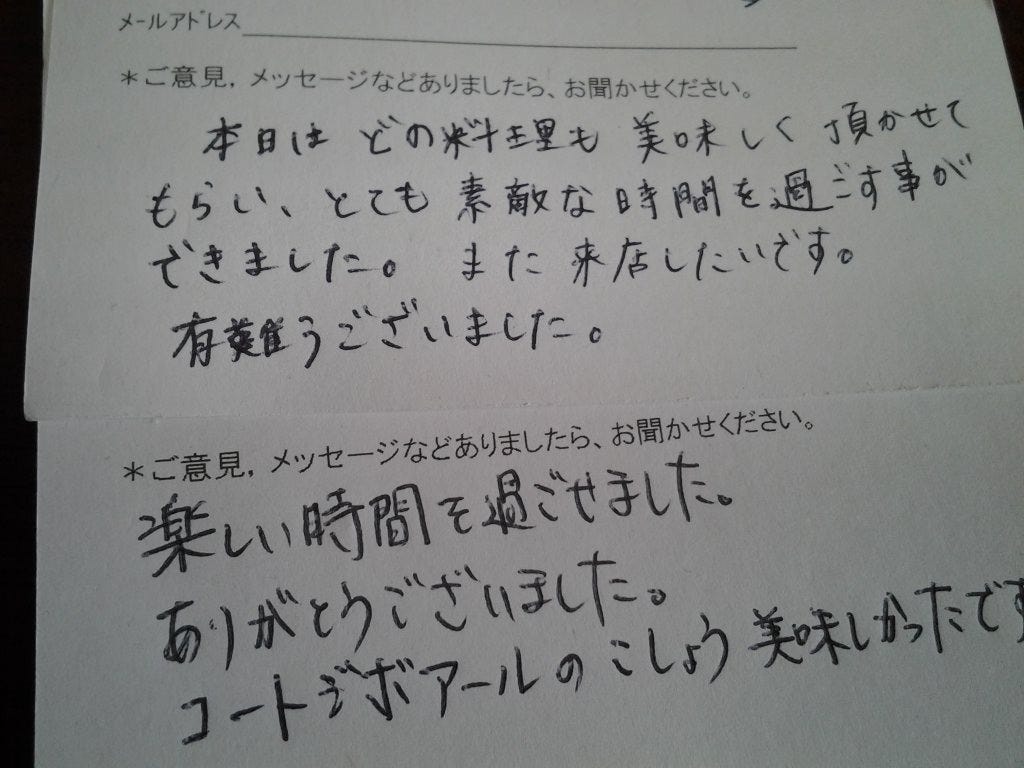 メールアドレス
＊ご意見，メッセージなどありましたら、お聞かせください。
本日は どの料理も 美味しく 頂かせて
もらい、とても 素敵な時間を過ごす事が
できました。 また 来店したいです。
有難うございました。
＊ご意見，メッセージなどありましたら、お聞かせください。
楽しい時間を過ごせました。
ありがとうございました。
コートジボアールの こしょう 美味しかったです